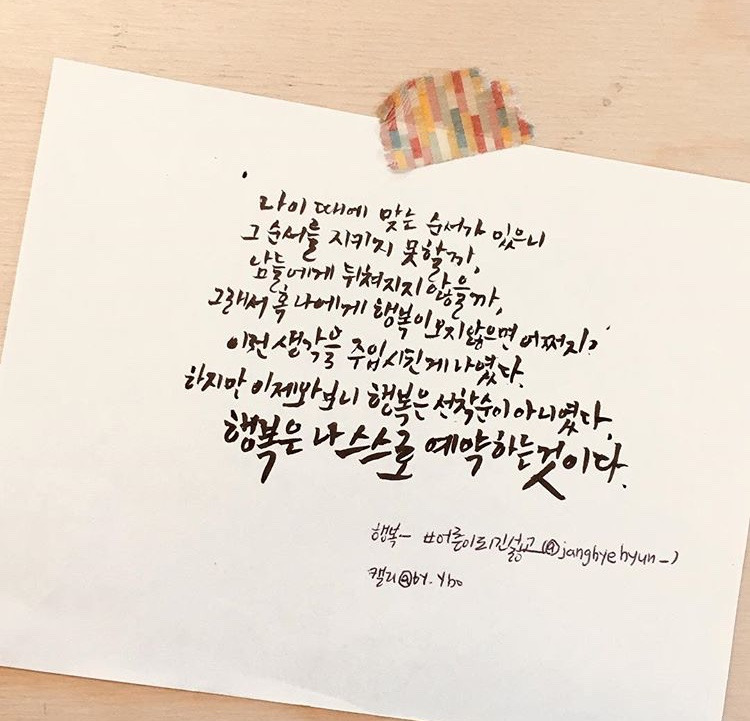 나이 때에 맞는 순서가 있으니
그 순서를 지키지 못할까,
남들에게 뒤쳐지지 않을까,
그래서 혹 나에게 행복이 오지않으면 어쩌지?
이런 생각을 주입시킨게 나였다.
하지만 이제와보니 행복은 선착순이 아니였다.
행복은 나 스스로 예약하는것이다.
행복- #어른이되긴싫고(@janghyehyun_)
캘리@by.ybo